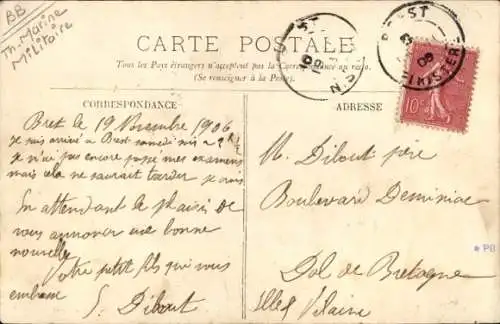 BB
Th. Marine
Militaire
CARTE POSTALE
Tous les Pays étrangers n'acceptent pas la Correspondance au recto.
(Se renseigner à la Poste)
CORRESPONDANCE
ADRESSE
BREST
FINISTERE
10c
Brest le 19 1906
je suis arrivé à Brest samedi
je n'ai pas encore passé mes examens
mais cela ne saurait tarder je crois
En attendant le plaisir de
vous annoncer une bonne
nouvelle
Votre petit fils qui vous
embrasse
S. Dibout
M. Dibout père
Boulevard Deminiac
Dol de Bretagne
Ille & Vilaine
* PB